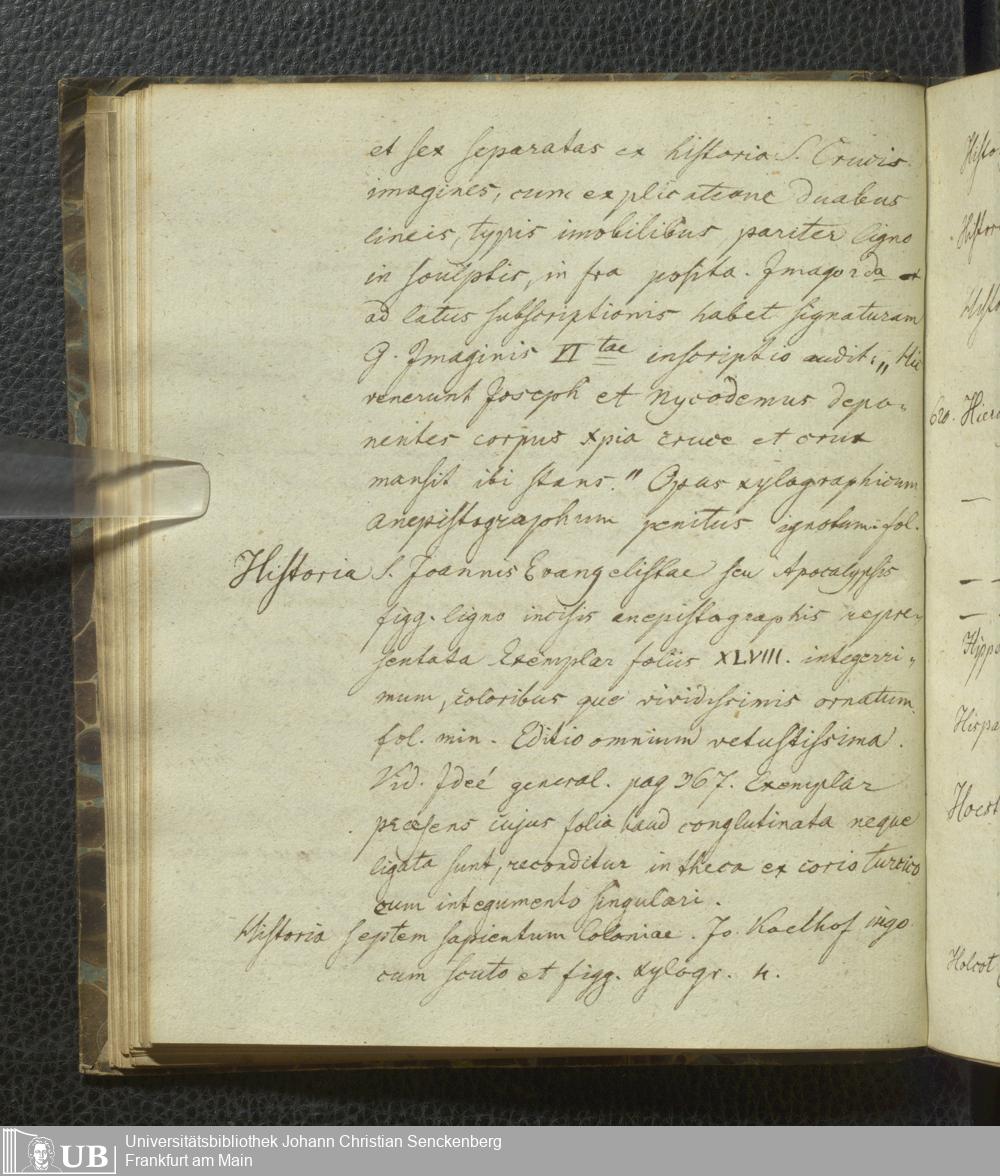 et sex separatas ex historia S. Crucis
imagines, cum explicatione duabus
lineis, typis imobilibus pariter ligno
in sculptis, in fra posita. Imago 2da et
ad latus subscriptionis habet signaturam
G. Imaginis VI tae inscriptio audit: „ Hic
venerunt Joseph et Nycodemus depo-
nentes corpus xpi a cruce et crux
mansit ibi stans." Opus xylographicum
anepistographum penitus ignotum. fol.
Historia S. Joannis Evangelistae seu Apocalypsis
figg. ligno incisis anepistographis repre-
sentata Exemplar foliis XLVIII. integerri-
mum, coloribus que vividissimis ornatum.
fol. min. Editio omnium vetustissima.
Vid. Ideé general. pag 367. Exemplar
praesens cujus folia haud conglutinata neque
ligata sunt, reconditur in theca ex corio turcico
cum integumento singulari.
Historia septem sapientum Coloniae. Jo. Koelhof 1490
cum scuto et figg. xylogr. 4.
Histo
Histor
Histo
620. Hiero
—
— —
—
Hippo
Hispa
Hoest
Holcot
UB Universitätsbibliothek Johann Christian Senckenberg
Frankfurt am Main